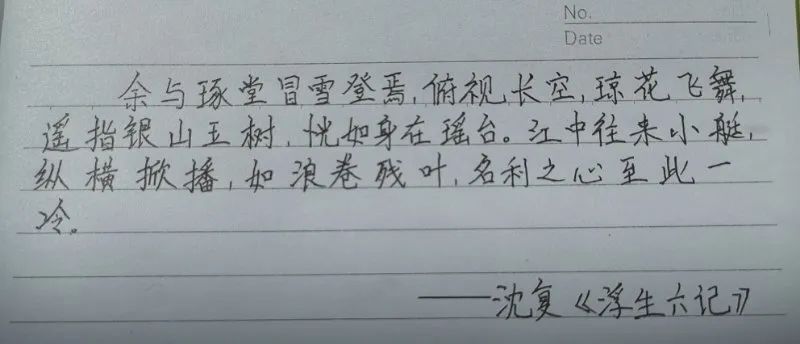 No.
Date
余与琢堂冒雪登焉,俯视长空,琼花飞舞,
遥指银山玉树,恍如身在瑶台。江中往来小艇,
纵横掀播,如浪卷残叶,名利之心至此一
冷。
——沈复《浮生六记》